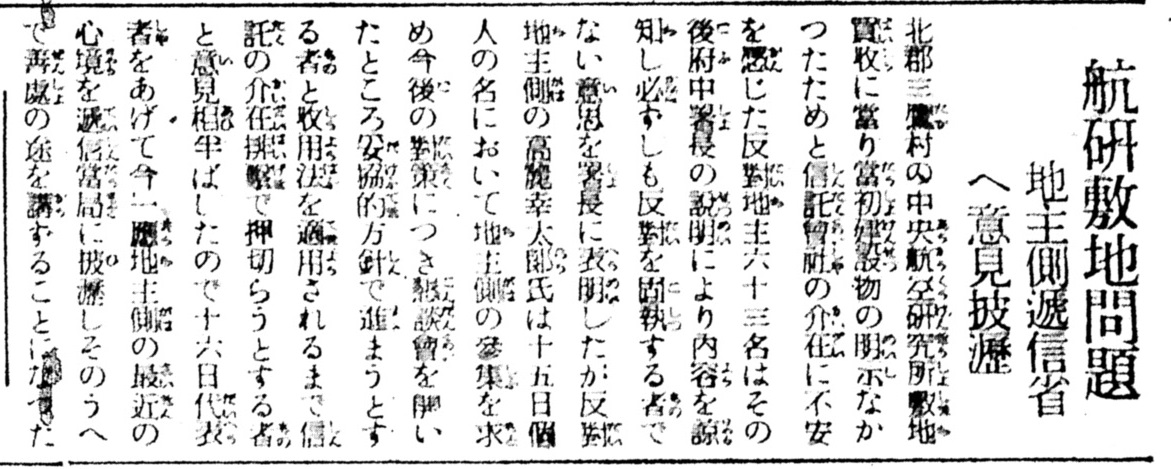 航研敷地問題
地主側遞信省
へ意見披瀝
北郡三鷹村の中央航空研究所敷地
買收に當り當初建設物の明示なか
つたためと信託會社の介在に不安
を感じた反對地主六十三名はその
後府中署長の說明により內容を諒
知し必ずしも反對を固執する者で
ない意思を署長に表明したが反對
地主側の高麗幸太郞氏は十五日個
人の名において地主側の參集を求
め今後の對策につき懇談會を開い
たところ妥協的方針で進まうとす
る者と收用法を適用されるまで信
託の介在排擊で押切らうとする者
と意見相半ばしたので十六日代表
者をあげて今一應地主側の最近の
心境を遞信當局に披瀝しそのうへ
で善處の途を講ずることになつた